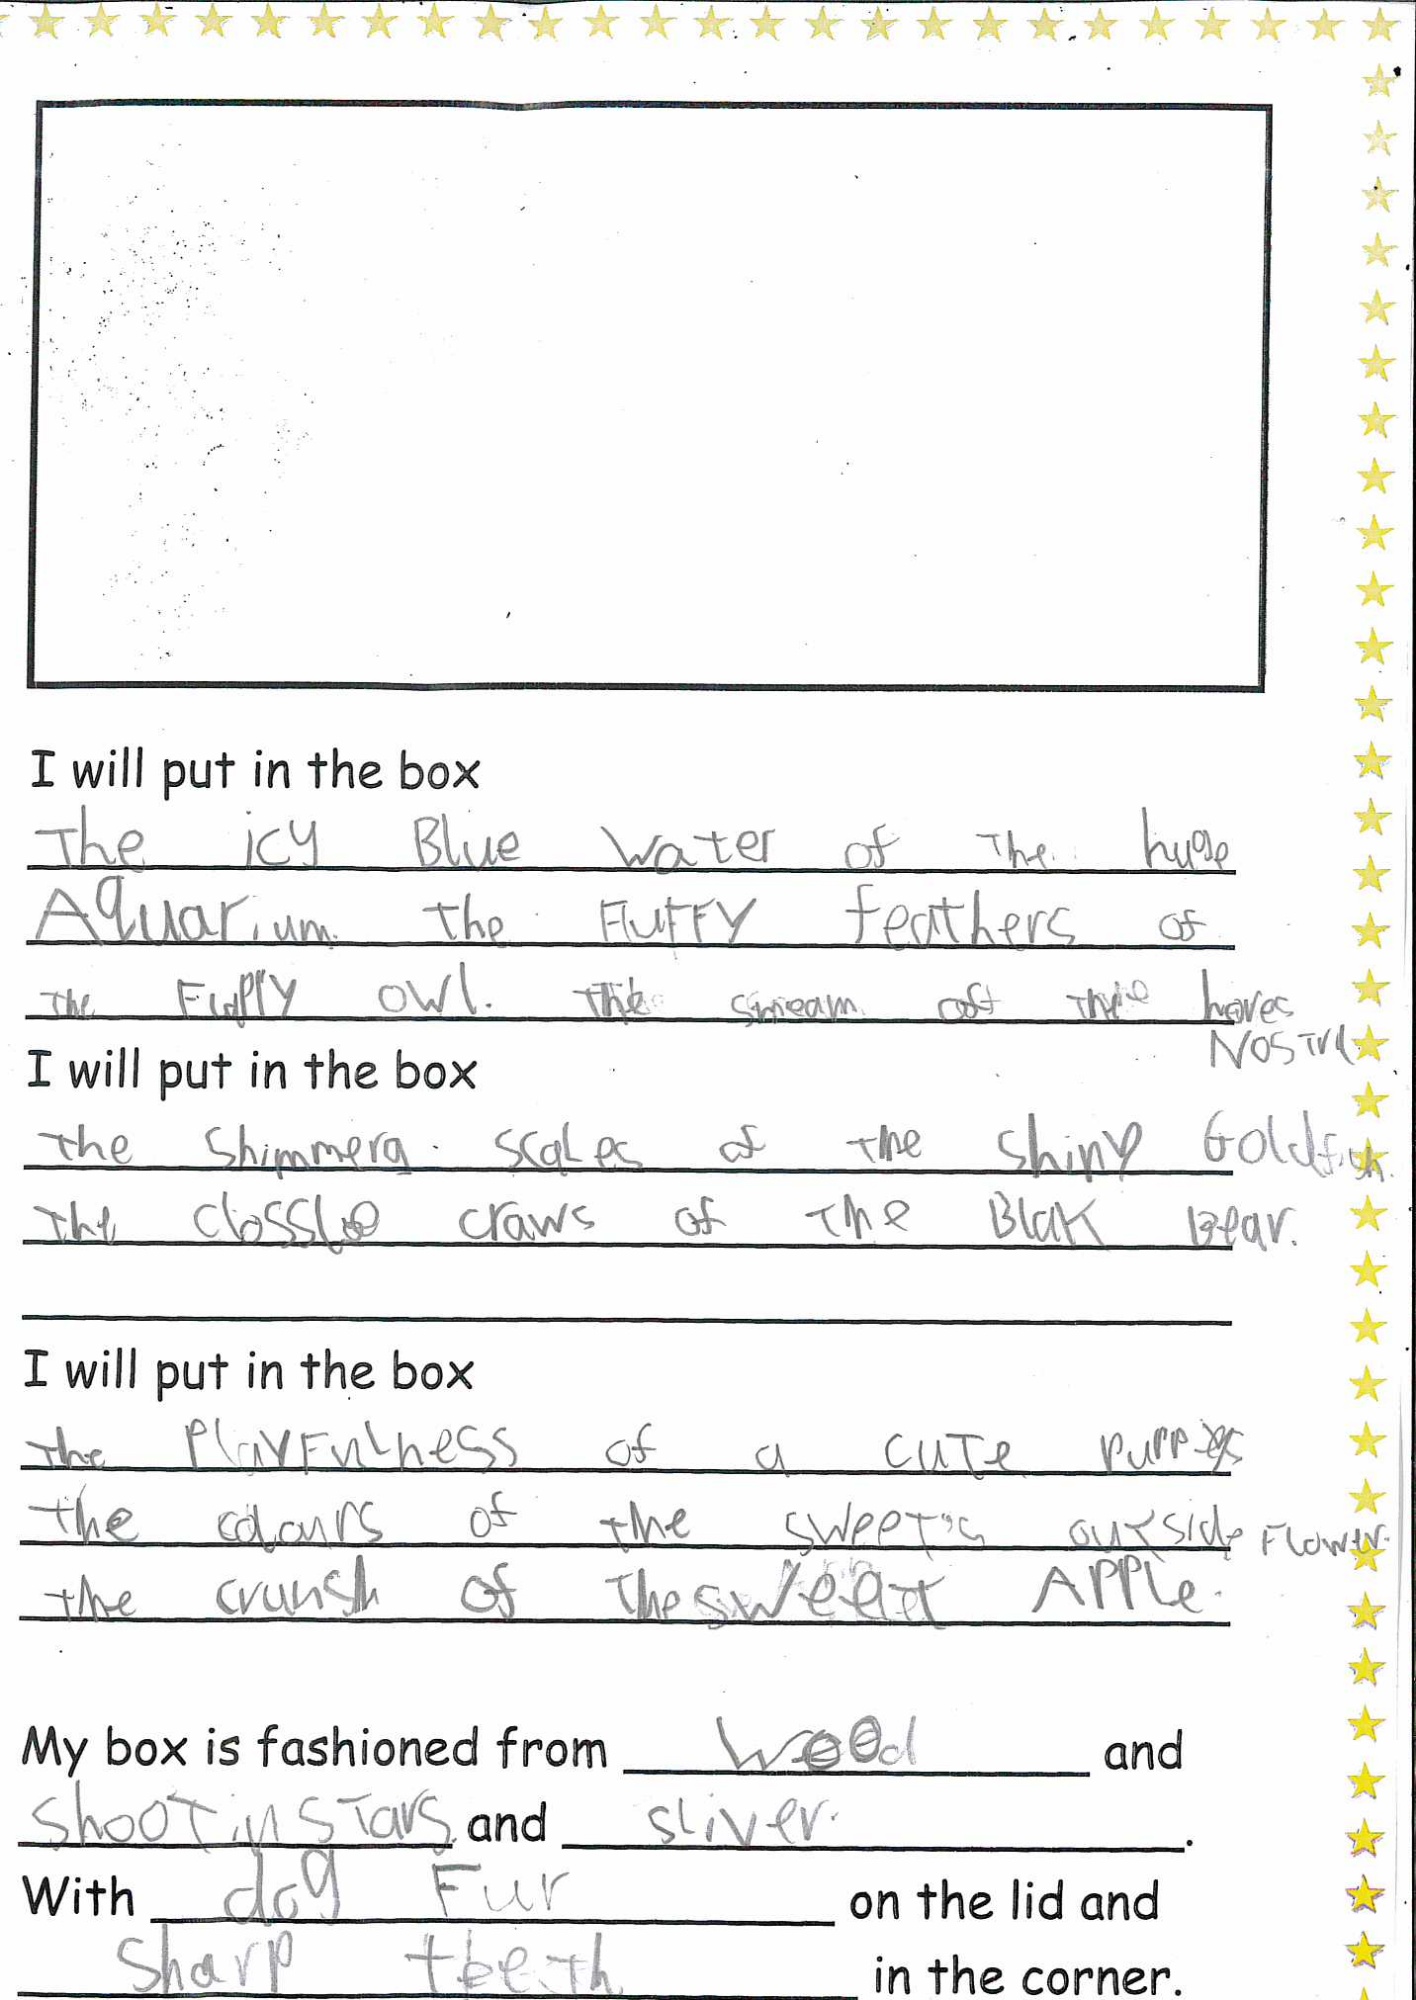 I will put in the box
The icy Blue water of The huge
Aquarium. the FluFFy feathers of
The Fluffy owl. The smeam of the hores
NosTrl
I will put in the box
the Shimmerg scales of The shiny Goldfish.
The clossloe craws of The Blak Bear.
I will put in the box
the PlayFulness of a cuTe puppies
the colours of the sweet's outside Flower.
the crunsh of The sweet APPle.
My box is fashioned from wood and
shooTin sTars and sliver.
With dog Fur on the lid and
sharp teeth in the corner.